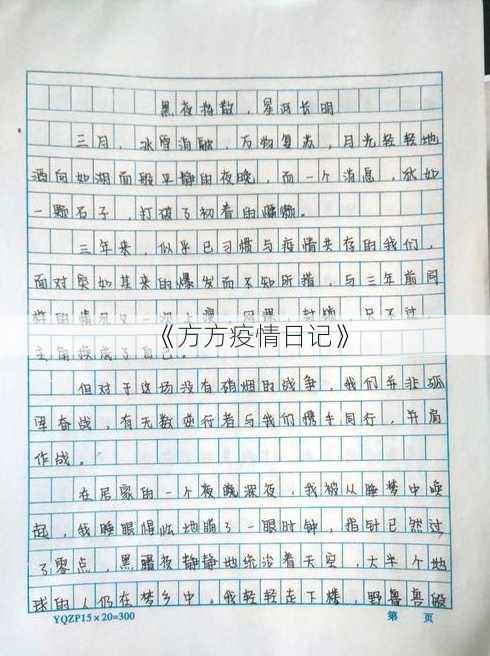 黑夜将散，星河长明
三月，冰雪消融，万物复苏，月光轻轻地
洒向如湖面般平静的夜晚，而一个消息，犹如
一颗石子，打破了初春的慵懒。
三年来，似乎已习惯与疫情共存的我们，
面对突如其来的爆发而不知所措，与三年前同
样的情况又一次上演，网课，封锁，只不过，
《方方疫情日记》
主角换成了自己。
但对于这场没有硝烟的战争，我们并非孤
军奋战，有无数逆行者与我们携手同行，并肩
作战。
在居家的一个夜晚深夜，我被从睡梦中唤
起，我睡眼惺忪地瞄了一眼时钟，指针已然过
了零点，黑暗夜静静地统治着天空，大半个地
球的人仍在梦乡中，我轻轻走下楼，野兽兽般
YQZP15×20=300 第 页